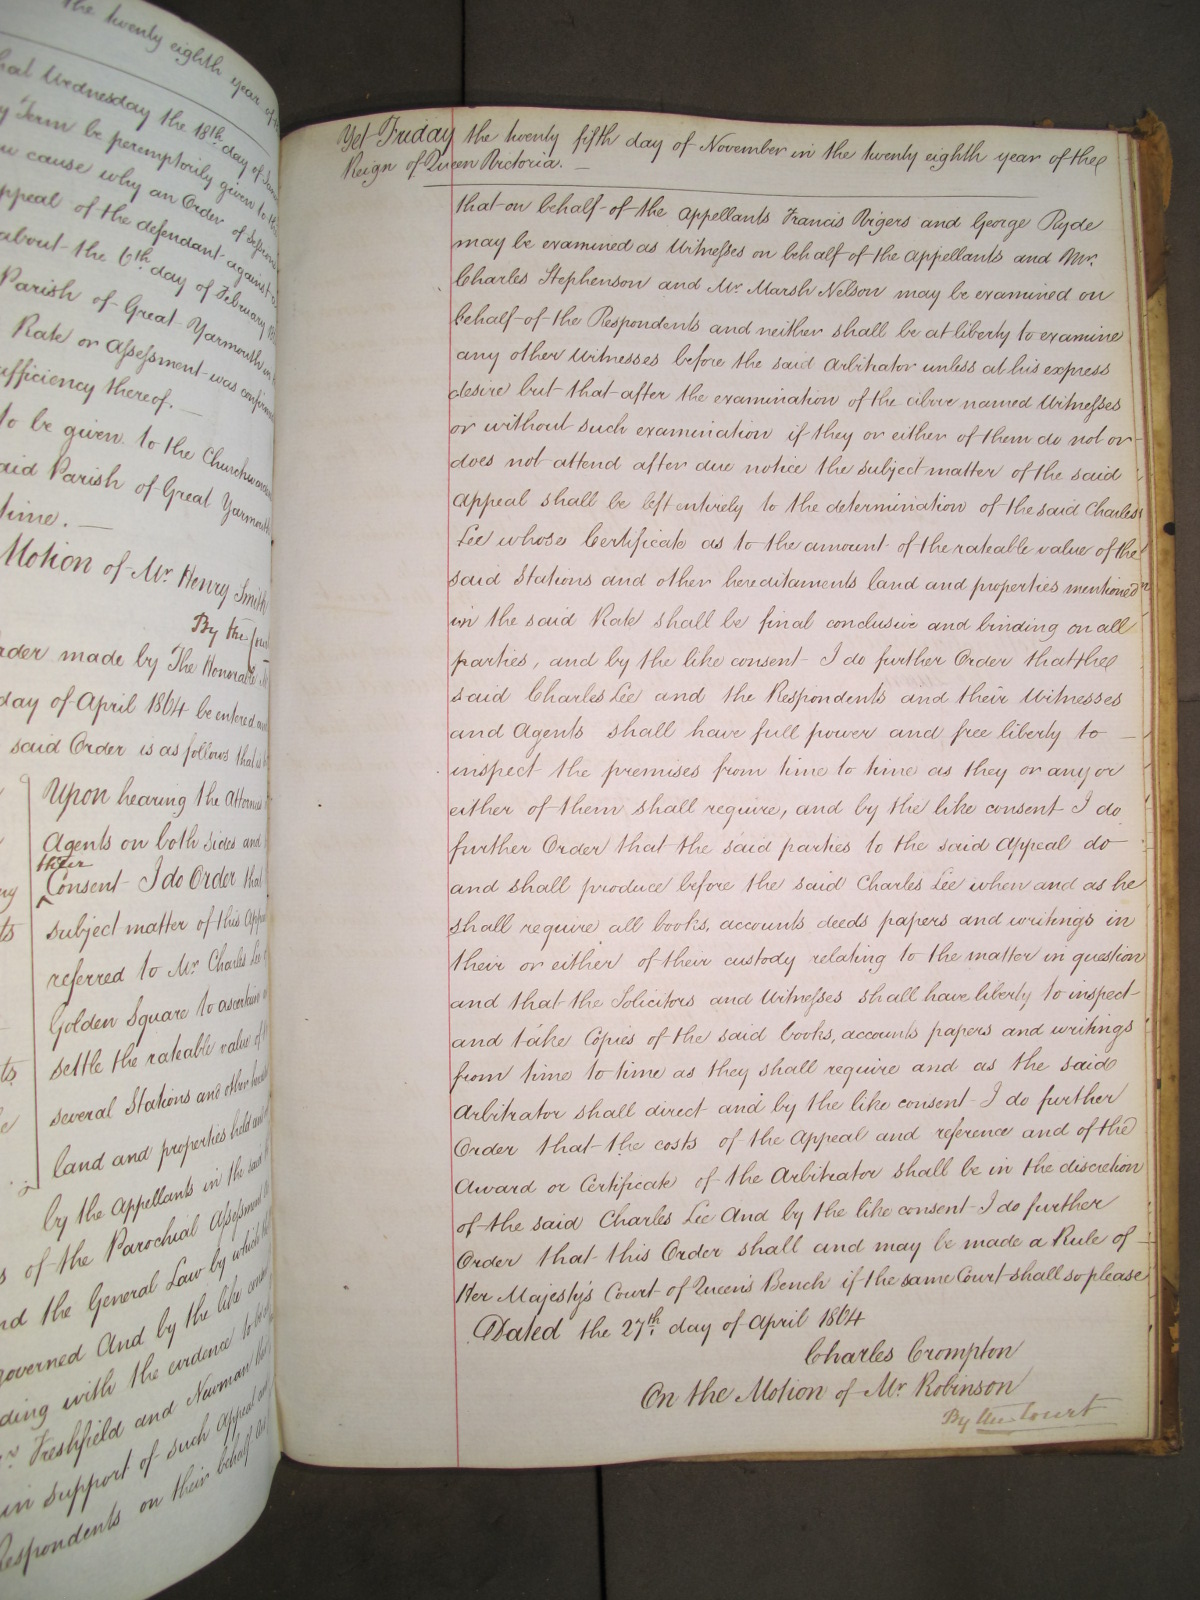 the twenty eighth year of
hat Wednesday the 18th day of
y Term be peremptorily given to the
w cause why an Order of
ppeal of the defendant against
about the 6th day of February
Parish of Great Yarmouth in
Rate or Assessment was confirmed
ufficiency thereof. —
to be given to the Churchwardens
aid Parish of Great Yarmouth
time. —
Motion of Mr. Henry Smith
By the Court
rder made by The Honorable
day of April 1864 be entered
said Order is as follows that is
Upon hearing the Attornies
Agents on both sides and
their
Consent I do Order that
subject matter of this Appeal
referred to Mr. Charles Lee
Golden Square to ascertain
settle the rateable value of
several Stations and other
land and properties held
by the Appellants in the said
s of the Parochial Assessment
nd the General Law by which
governed And by the like
ding with the evidence to be
Freshfield and Newman
in support of such Appeal
Respondents on their behalf
Yet Friday the twenty fifth day of November in the twenty eighth year of the
Reign of Queen Victoria. —
that on behalf of the Appellants Francis Vigers and George Ryde
may be examined as Witnesses on behalf of the Appellants and Mr.
Charles Stephenson and Mr. Marsh Nelson may be examined on
behalf of the Respondents and neither shall be at liberty to examine
any other Witnesses before the said Arbitrator unless at his express
desire but that after the examination of the above named Witnesses
or without such examination if they or either of them do not or
does not attend after due notice the subject matter of the said
Appeal shall be left entirely to the determination of the said Charles
Lee whose Certificate as to the amount of the rateable value of the
said Stations and other hereditaments land and properties mentioned
in the said Rate shall be final conclusive and binding on all
parties, and by the like consent I do further Order that the
said Charles Lee and the Respondents and their Witnesses
and Agents shall have full power and free liberty to —
inspect the premises from time to time as they or any or
either of them shall require, and by the like consent I do
further Order that the said parties to the said Appeal do
and shall produce before the said Charles Lee when and as he
shall require all books, accounts deeds papers and writings in
their or either of their custody relating to the matter in question
and that the Solicitors and Witnesses shall have liberty to inspect
and take Copies of the said books, accounts papers and writings
from time to time as they shall require and as the said
Arbitrator shall direct and by the like consent I do further
Order that the costs of the Appeal and reference and of the
Award or Certificate of the Arbitrator shall be in the discretion
of the said Charles Lee And by the like consent I do further
Order that this Order shall and may be made a Rule of —
Her Majesty's Court of Queen's Bench if the same Court shall so please
Dated the 27th day of April 1864
Charles Crompton
On the Motion of Mr. Robinson
By the Court